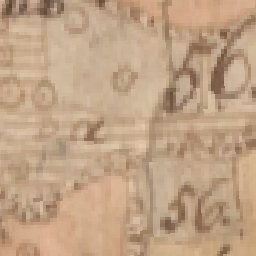 56.
a
56.